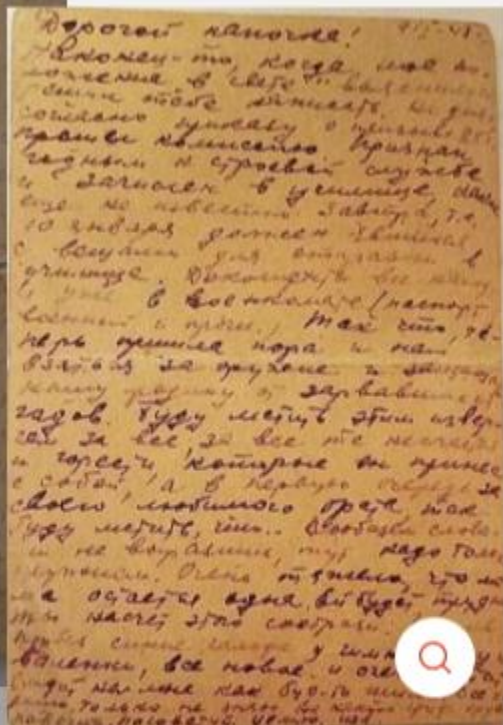 Дорогой папочка! 9/I-43
Наконец-то, когда мое по-
ложение в свете выяснилось
решил тебе написать. На днях
согласно приказу о призыве
прошел комиссию. Признан
годным к строевой службе
и зачислен в училище,
еще не известно. Завтра, т.е.
10 января должен явиться
с вещами для отправки в
училище. Документы все
уже в военкомате (паспорт
военный и проч.). Так что, те-
перь пришла пора и нам
взяться за оружие и защищать
нашу родину от зарвавшихся
гадов. Буду мстить этим извер-
гам за все, за все те несчастья
и горести, которые он принес
с собой, а в первую очередь за
своего любимого брата, так
буду мстить, что.. Вообщем слова-
ми не выразишь, тут надо только
оружием. Очень тяжело, что ма-
ма остается одна. Ей будет трудно
ты насчет этого сообрази.
синие галоше у
валенки, все новое и
как будто
только не знаю